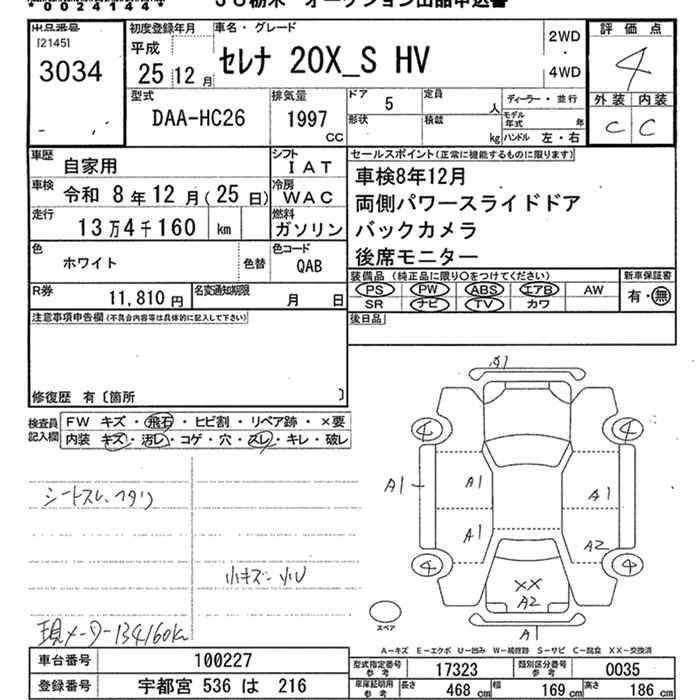 *0024144*
JU栃木 オークション出品申込書
出品番号
[2145]
3034
初度登録年月
平成
25年12月
車名・グレード
セレナ 20X_S HV
2WD
・
4WD
評価点
4
外装 内装
C C
型式
DAA-HC26
排気量
1997
CC
ドア
5
定員
人
形状
積載
kg
ディーラー・並行
モデル年式
年
ハンドル 左・右
車歴
自家用
シフト
IAT
車検
令和 8年12月(25日)
冷房
WAC
走行
13万4千160 km
燃料
ガソリン
色
ホワイト
色替
色コード
QAB
R券
11,810円
名変通知期限
月 日
セールスポイント(正常に機能するものに限ります)
車検8年12月
両側パワースライドドア
バックカメラ
後席モニター
装備品 (純正品に限り○をつけてください)
PS PW ABS エアB AW
SR ナビ TV カワ
新車保証書
有・無
後日品
注意事項申告欄(不具合内容等は具体的に記入して下さい)
修復歴 有〔箇所 〕
検査員
記入欄
FW キズ・飛石・ヒビ割・リペア跡・×要
内装 キズ・汚レ・コゲ・穴・スレ・キレ・破レ
シートスレ、ヘタリ
小キズ 小U
現メーター134160km
A1
4
4
A1
A1
A1
A1
A2
4
4
XX
A2
A1
スペア
A-キズ E-エクボ U-凹み W-補修跡 S-サビ C-腐食 XX-交換済
車台番号
100227
登録番号
宇都宮 536 は 216
型式指定番号
参考
17323
類別区分番号
参考
0035
車庫証明用
参考
長さ
468 cm
幅
169 cm
高さ
186 cm